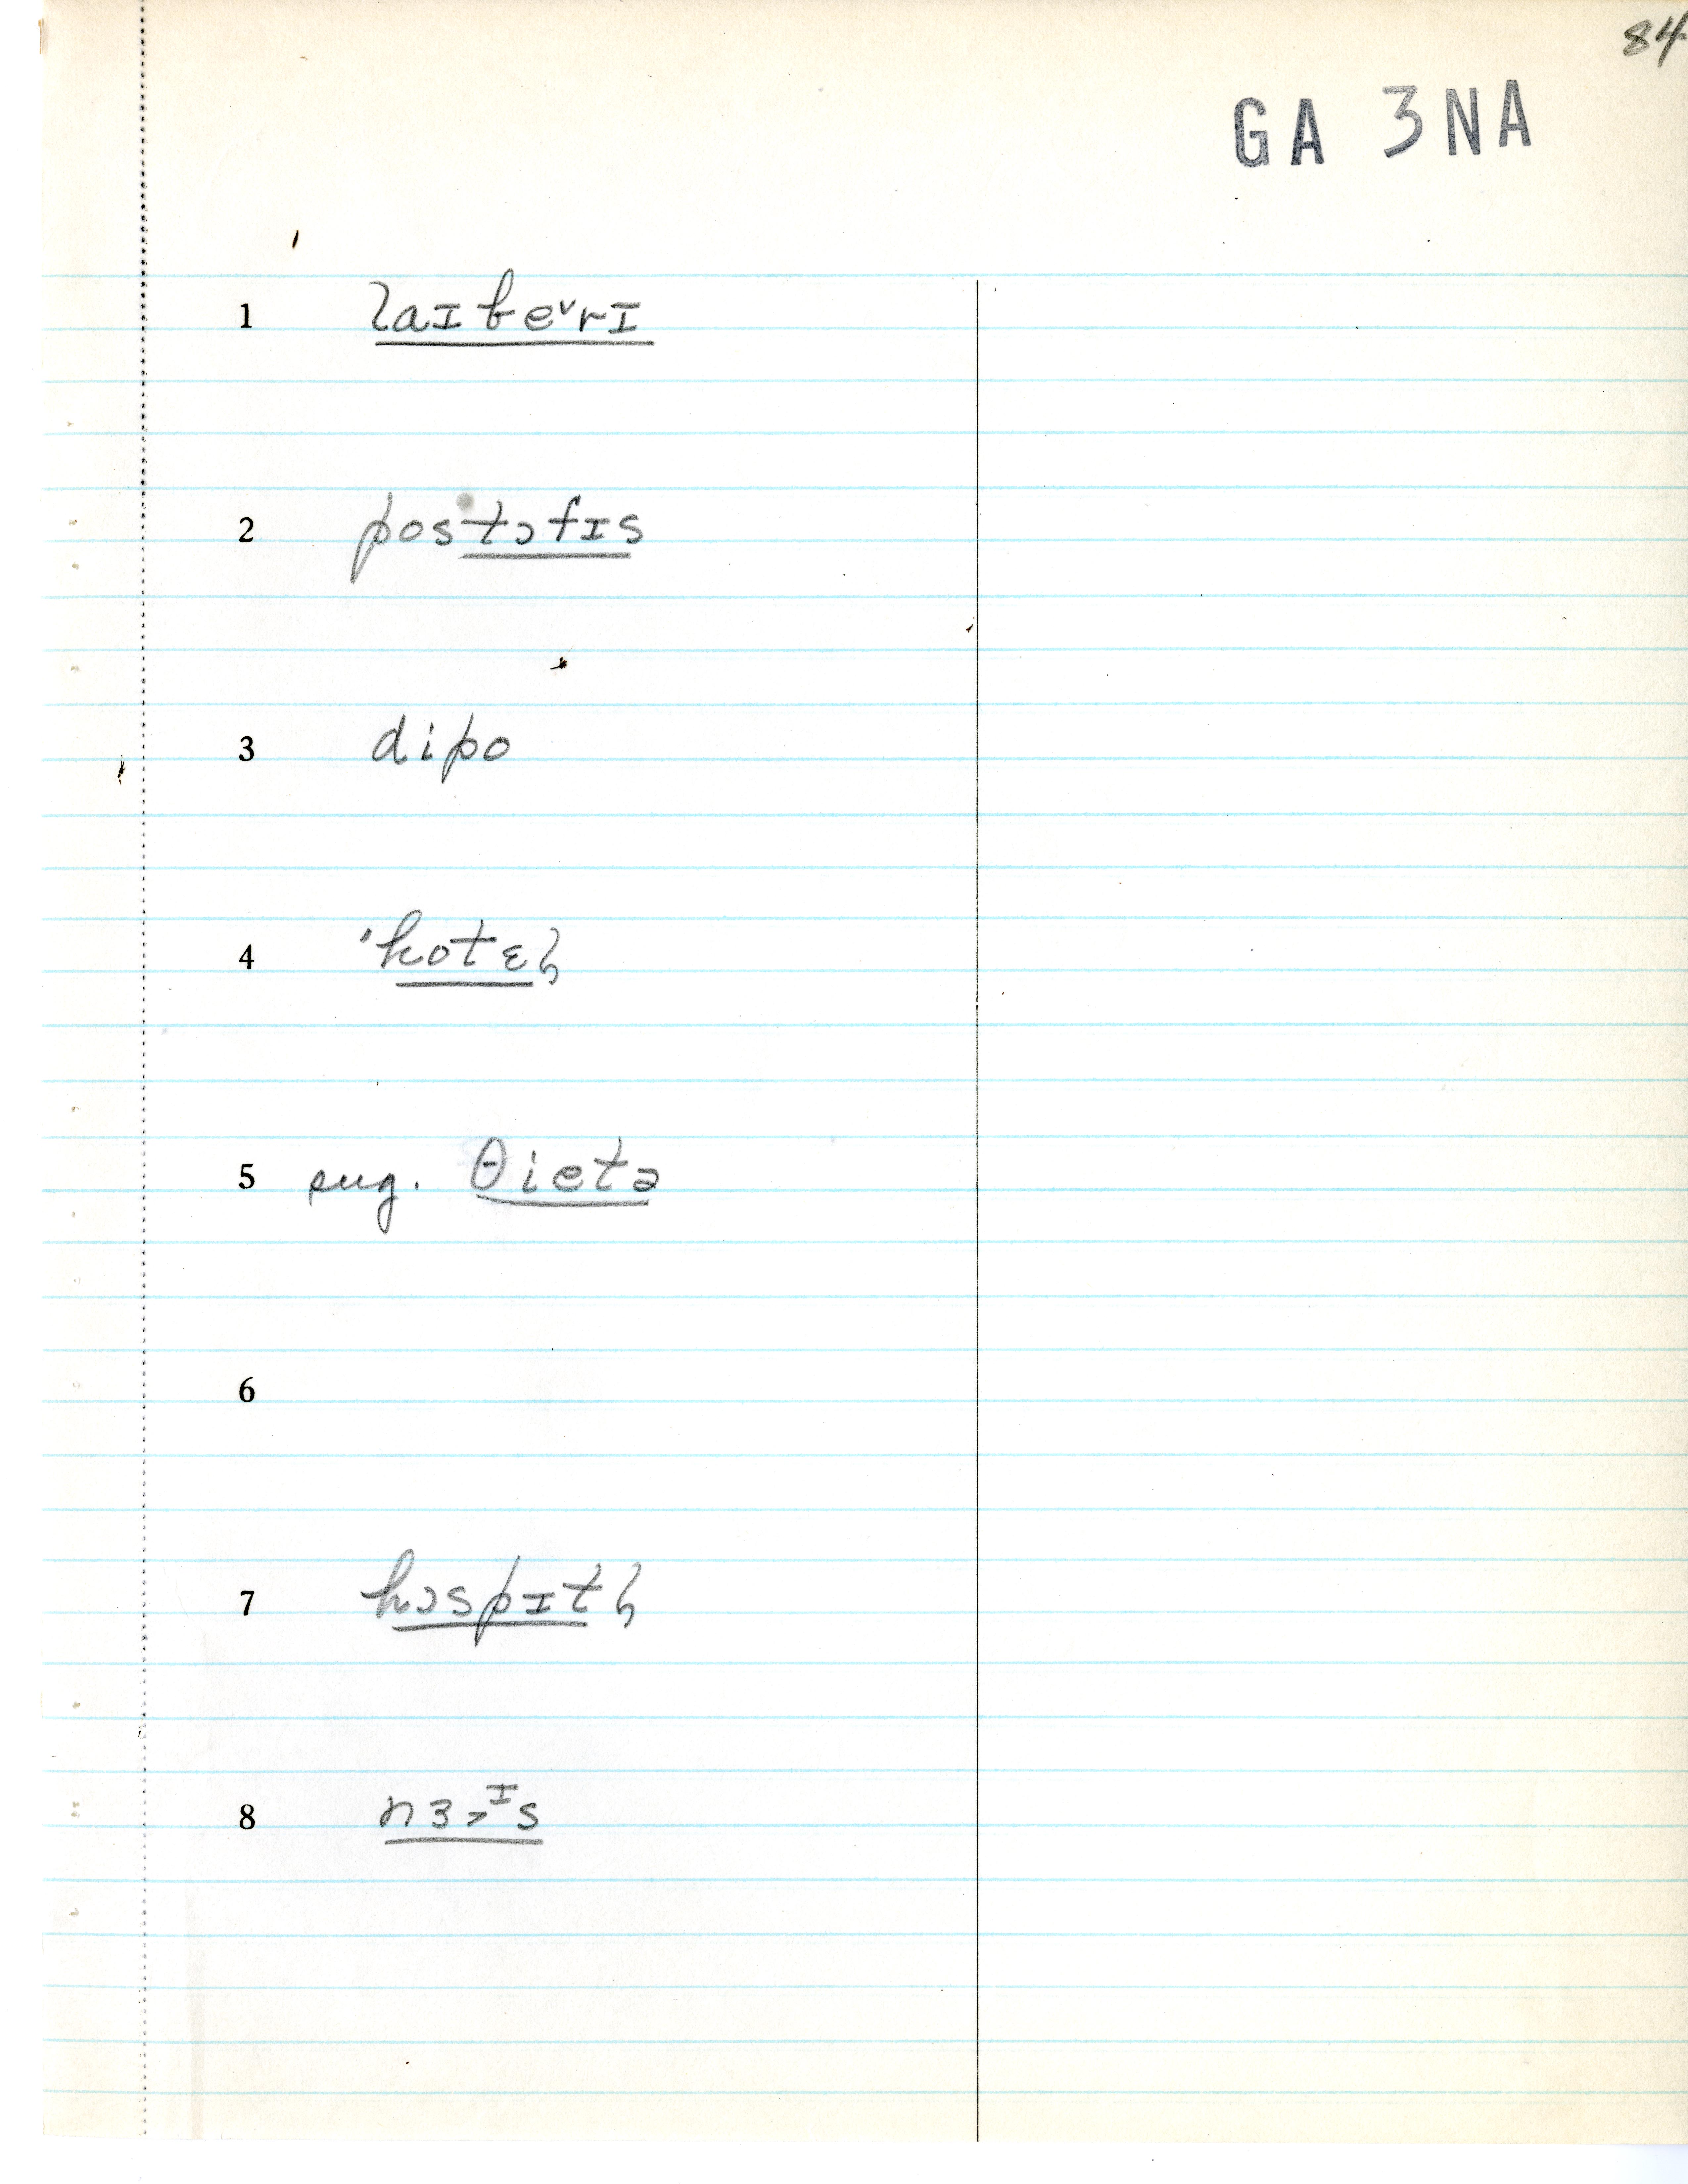 84
GA 3NA
1 laɪbeᵛrɪ
2 postɔfɪs
3 dipo
4 'hotɛɫ
5 sug. θietə
6
7 hɔspɪtɫ
8 nɜ>ᶦs